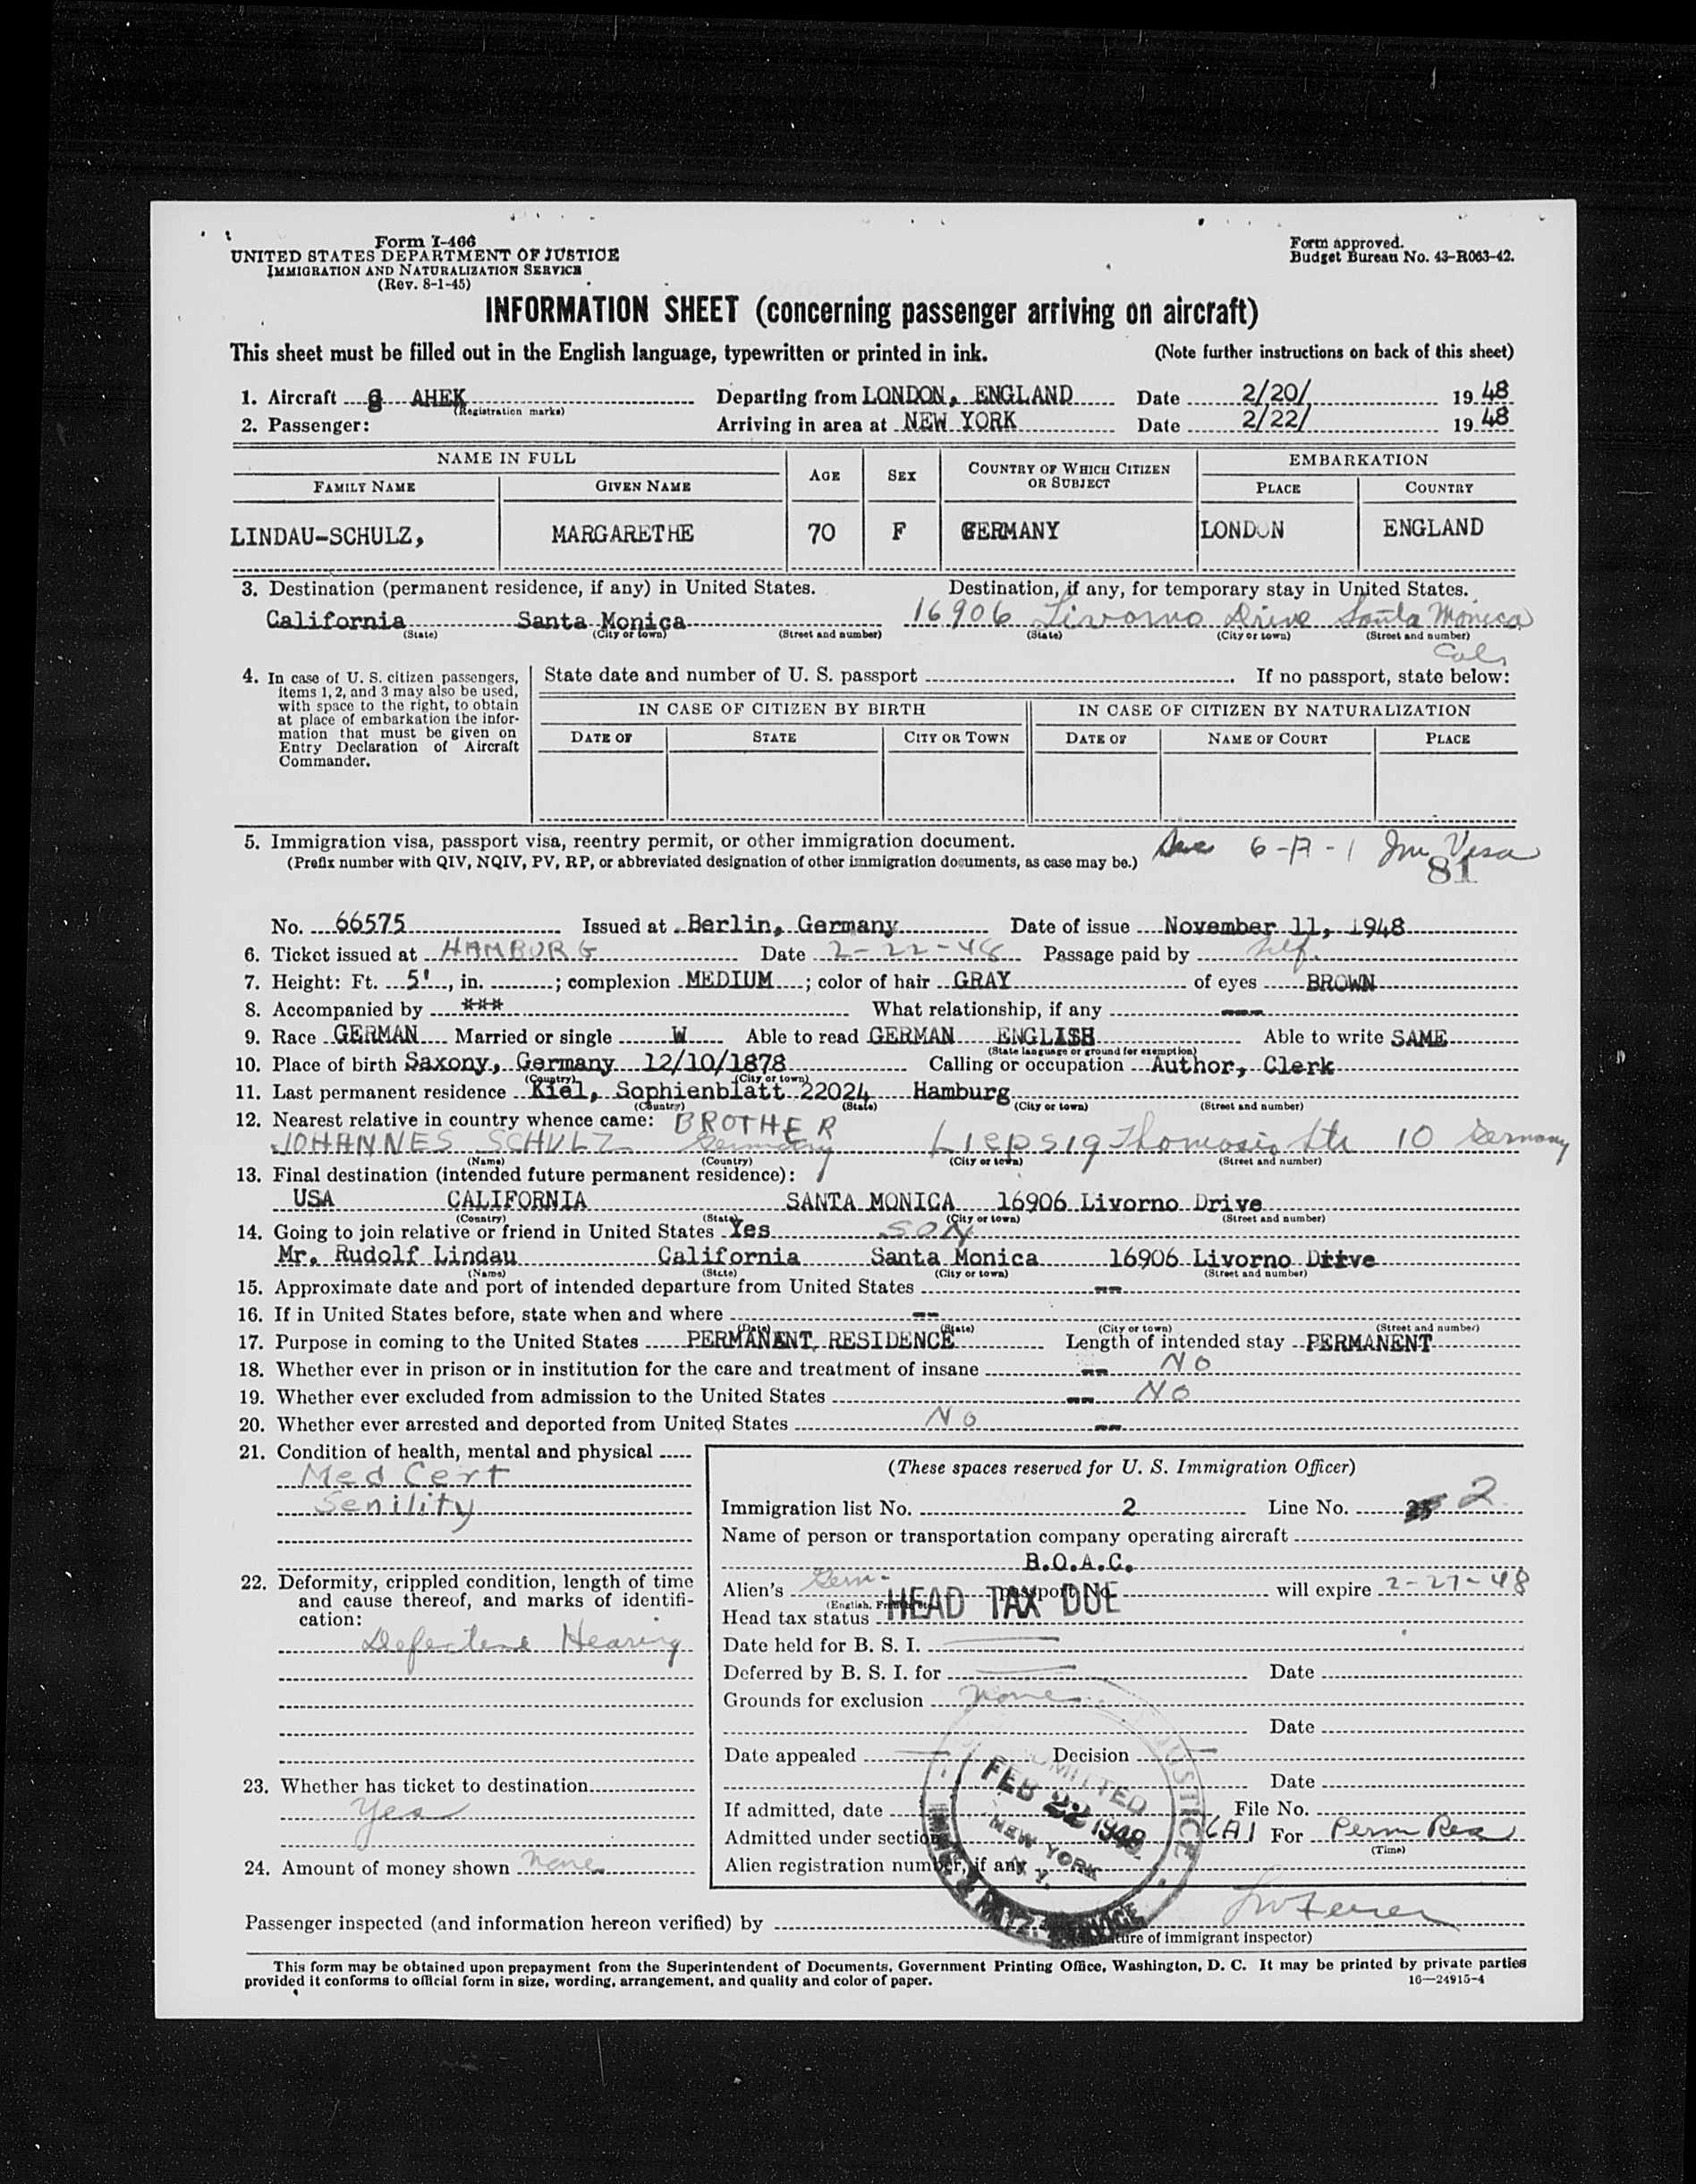 Form I-466
UNITED STATES DEPARTMENT OF JUSTICE
IMMIGRATION AND NATURALIZATION SERVICE
(Rev. 8-1-45)
Form approved.
Budget Bureau No. 43-R063-42.
INFORMATION SHEET (concerning passenger arriving on aircraft)
This sheet must be filled out in the English language, typewritten or printed in ink. (Note further instructions on back of this sheet)
1. Aircraft G AHEK Departing from LONDON, ENGLAND Date 2/20/ 1948
(Registration marks)
2. Passenger: Arriving in area at NEW YORK Date 2/22/ 1948
NAME IN FULL AGE SEX COUNTRY OF WHICH CITIZEN OR SUBJECT EMBARKATION
FAMILY NAME GIVEN NAME PLACE COUNTRY
LINDAU-SCHULZ, MARGARETHE 70 F GERMANY LONDON ENGLAND
3. Destination (permanent residence, if any) in United States. Destination, if any, for temporary stay in United States.
California Santa Monica 16906 Livorno Drive Santa Monica
(State) (City or town) (Street and number) (State) (City or town) (Street and number)
Cal.
4. In case of U. S. citizen passengers, items 1, 2, and 3 may also be used, with space to the right, to obtain at place of embarkation the information that must be given on Entry Declaration of Aircraft Commander.
State date and number of U. S. passport If no passport, state below:
IN CASE OF CITIZEN BY BIRTH IN CASE OF CITIZEN BY NATURALIZATION
DATE OF STATE CITY OR TOWN DATE OF NAME OF COURT PLACE
5. Immigration visa, passport visa, reentry permit, or other immigration document. Sec 6-A-1 Im Visa
(Prefix number with QIV, NQIV, PV, RP, or abbreviated designation of other immigration documents, as case may be.) 81
No. 66575 Issued at Berlin, Germany Date of issue November 11, 1948
6. Ticket issued at HAMBURG Date 2-22-48 Passage paid by Self.
7. Height: Ft. 5', in. ; complexion MEDIUM ; color of hair GRAY of eyes BROWN
8. Accompanied by *** What relationship, if any ---
9. Race GERMAN Married or single W Able to read GERMAN ENGLISH Able to write SAME
(State language or ground for exemption)
10. Place of birth Saxony, Germany 12/10/1878 Calling or occupation Author, Clerk
(Country) (City or town)
11. Last permanent residence Kiel, Sophienblatt 22024 Hamburg
(Country) (State) (City or town) (Street and number)
12. Nearest relative in country whence came: BROTHER
JOHANNES SCHULZ Germany Liepsig Thomasio Str 10 Germany
(Name) (Country) (City or town) (Street and number)
13. Final destination (intended future permanent residence):
USA CALIFORNIA SANTA MONICA 16906 Livorno Drive
(Country) (State) (City or town) (Street and number)
14. Going to join relative or friend in United States Yes SON
Mr. Rudolf Lindau California Santa Monica 16906 Livorno Drive
(Name) (State) (City or town) (Street and number)
15. Approximate date and port of intended departure from United States --
16. If in United States before, state when and where --
(Date) (State) (City or town) (Street and number)
17. Purpose in coming to the United States PERMANANT RESIDENCE Length of intended stay PERMANENT
18. Whether ever in prison or in institution for the care and treatment of insane -- NO
19. Whether ever excluded from admission to the United States -- NO
20. Whether ever arrested and deported from United States NO --
21. Condition of health, mental and physical
Med Cert
Senility
22. Deformity, crippled condition, length of time and cause thereof, and marks of identification:
Defective Hearing
23. Whether has ticket to destination
Yes
24. Amount of money shown None
(These spaces reserved for U. S. Immigration Officer)
Immigration list No. 2 Line No. 2
Name of person or transportation company operating aircraft
B.O.A.C.
Alien's Germ. passport No. will expire 2-27-48
(English, French, etc.)
Head tax status HEAD TAX DUE
Date held for B. S. I.
Deferred by B. S. I. for Date
Grounds for exclusion None
Date
Date appealed Decision
Date
If admitted, date File No.
Admitted under section 6A1 For Perm Res
(Time)
Alien registration number, if any
ADMITTED
FEB 22 1948
NEW YORK
N. Y.
JUSTICE
IMM. & NATZ. SERVICE
Passenger inspected (and information hereon verified) by
(Signature of immigrant inspector)
This form may be obtained upon prepayment from the Superintendent of Documents, Government Printing Office, Washington, D. C. It may be printed by private parties
provided it conforms to official form in size, wording, arrangement, and quality and color of paper. 16—24915-4